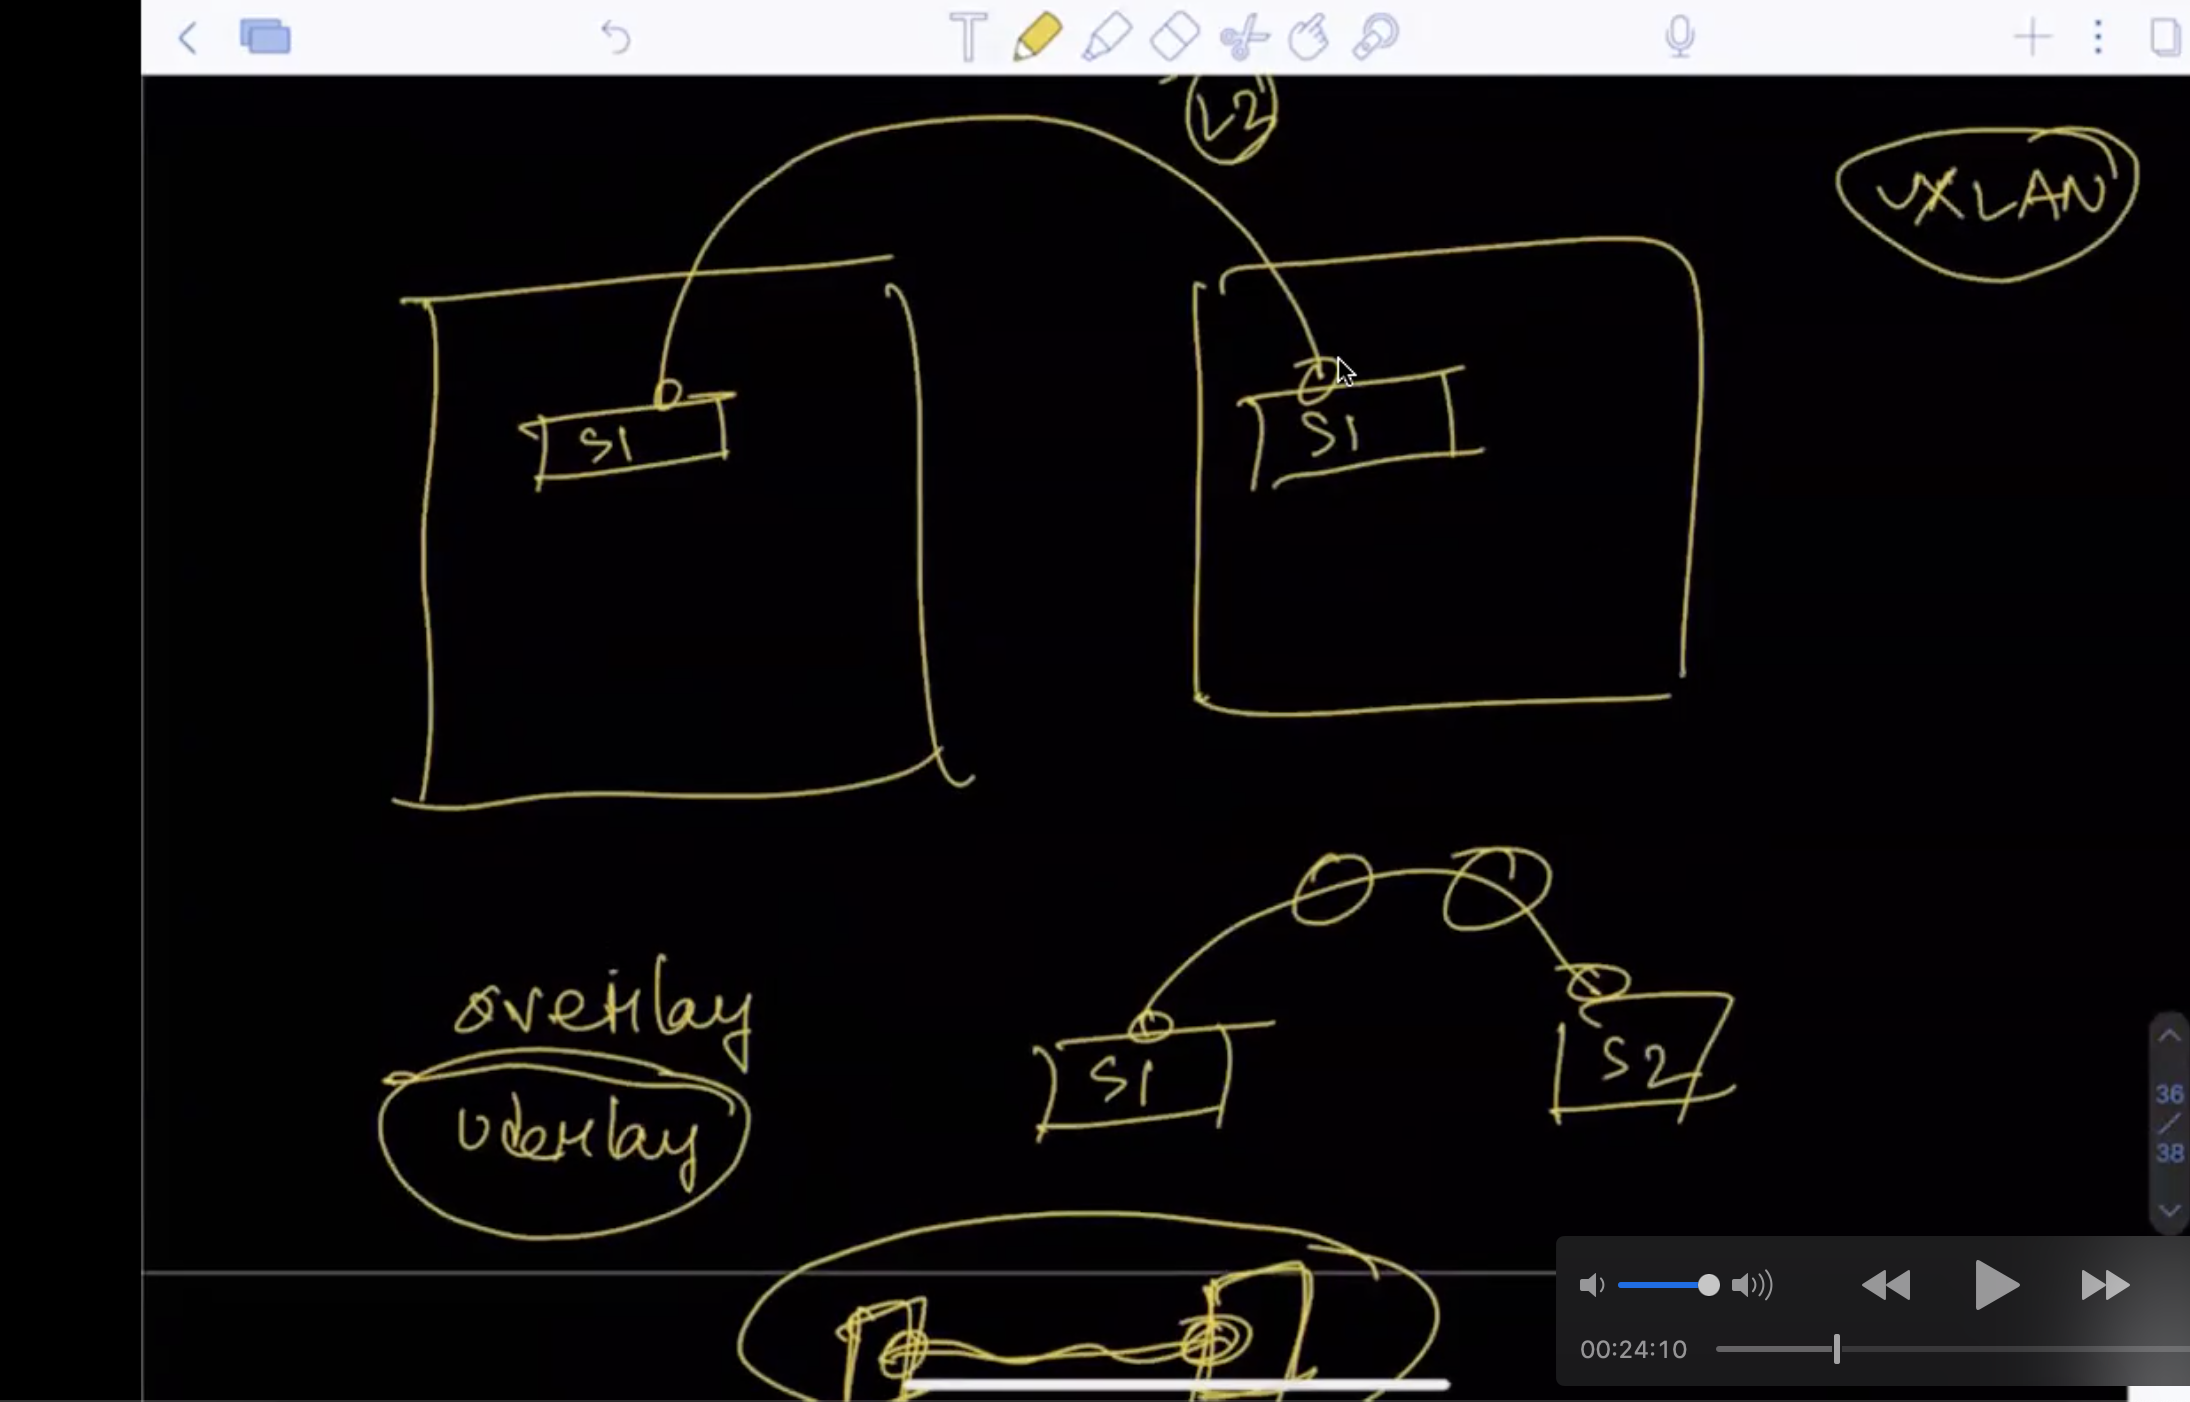 T
L2
VXLAN
S1
S1
overlay
uderlay
S1
S2
36
/
38
00:24:10